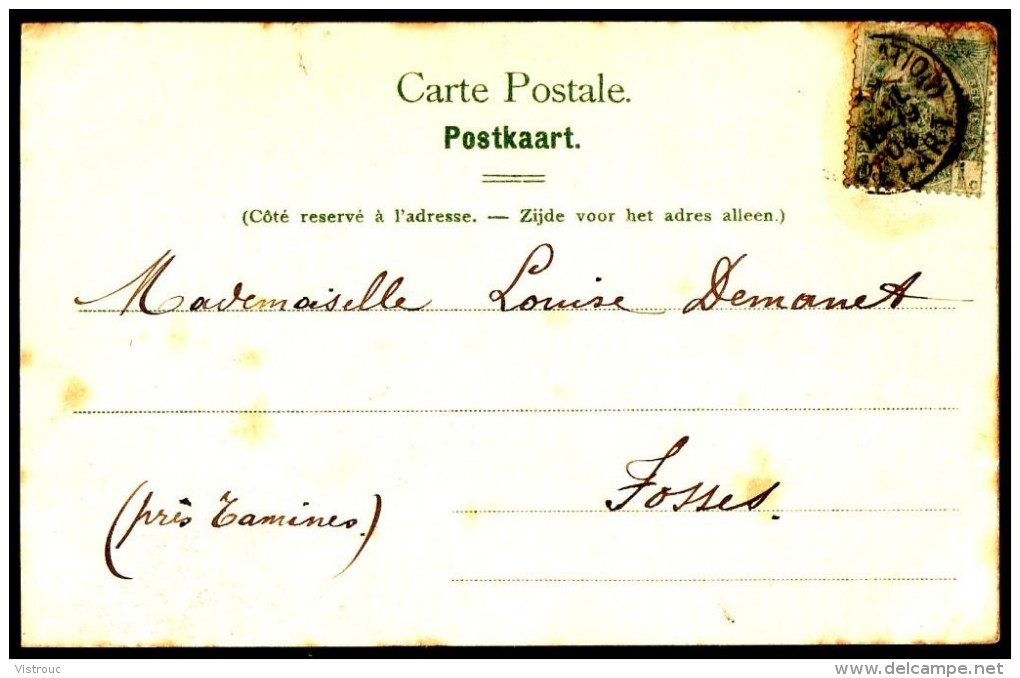 Carte Postale.
Postkaart.
(Côté reservé à l'adresse. — Zijde voor het adres alleen.)
Mademoiselle Louise Demanet
Fosses.
(près Tamines.)
Vistrouc
delcampe.net